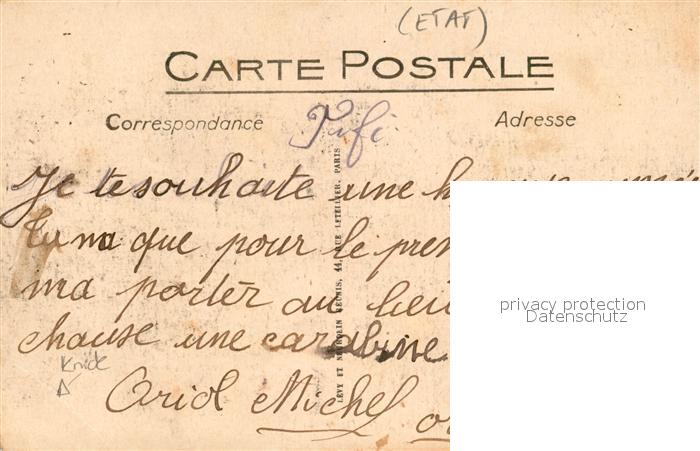 (ETAT)
CARTE POSTALE
Correspondance
Adresse
Je te souhaite une
Tu ma que pour le
ma porter au lieu
chause une carabine
Knick
Oriol Michel
LÉVY ET NEURDEIN RÉUNIS, 44, RUE LETELLIER, PARIS
privacy protection
Datenschutz